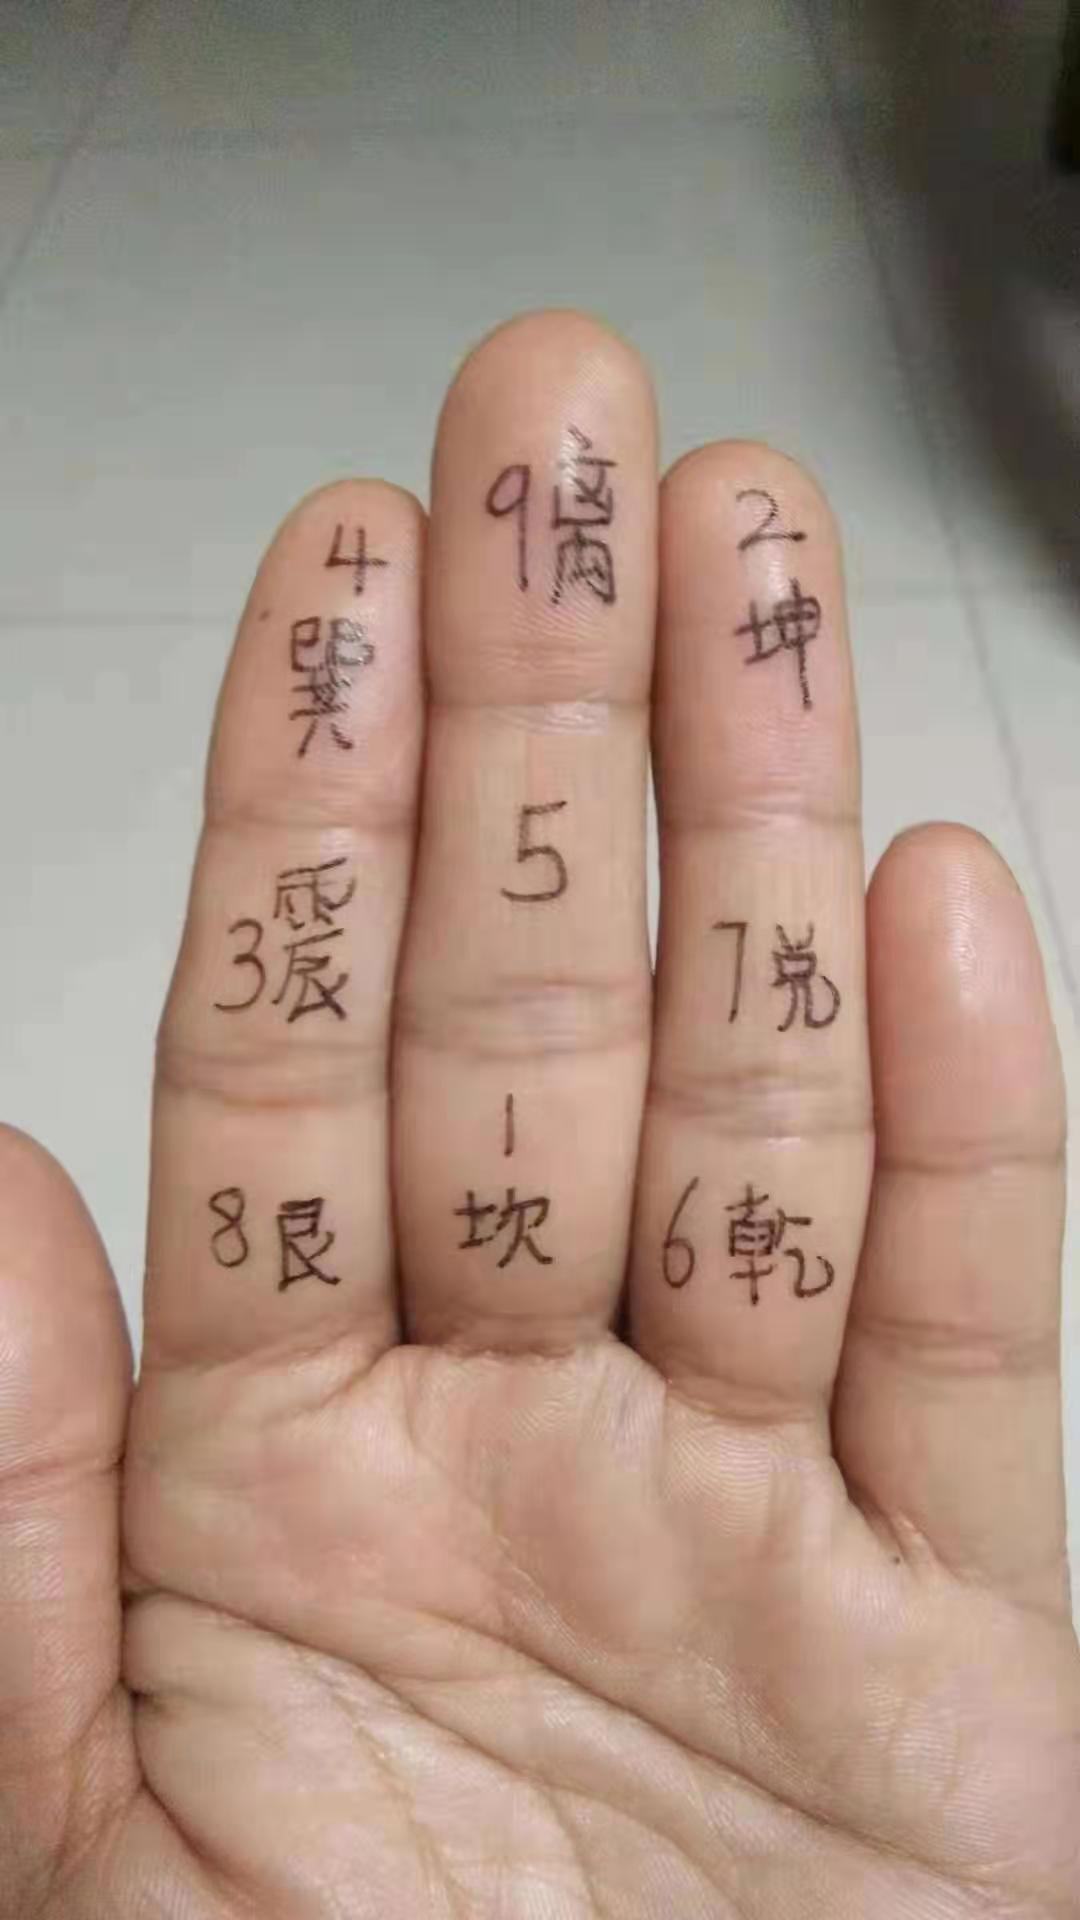 9离
4
巽
2
坤
5
3震
7兑
1
坎
8艮
6乾